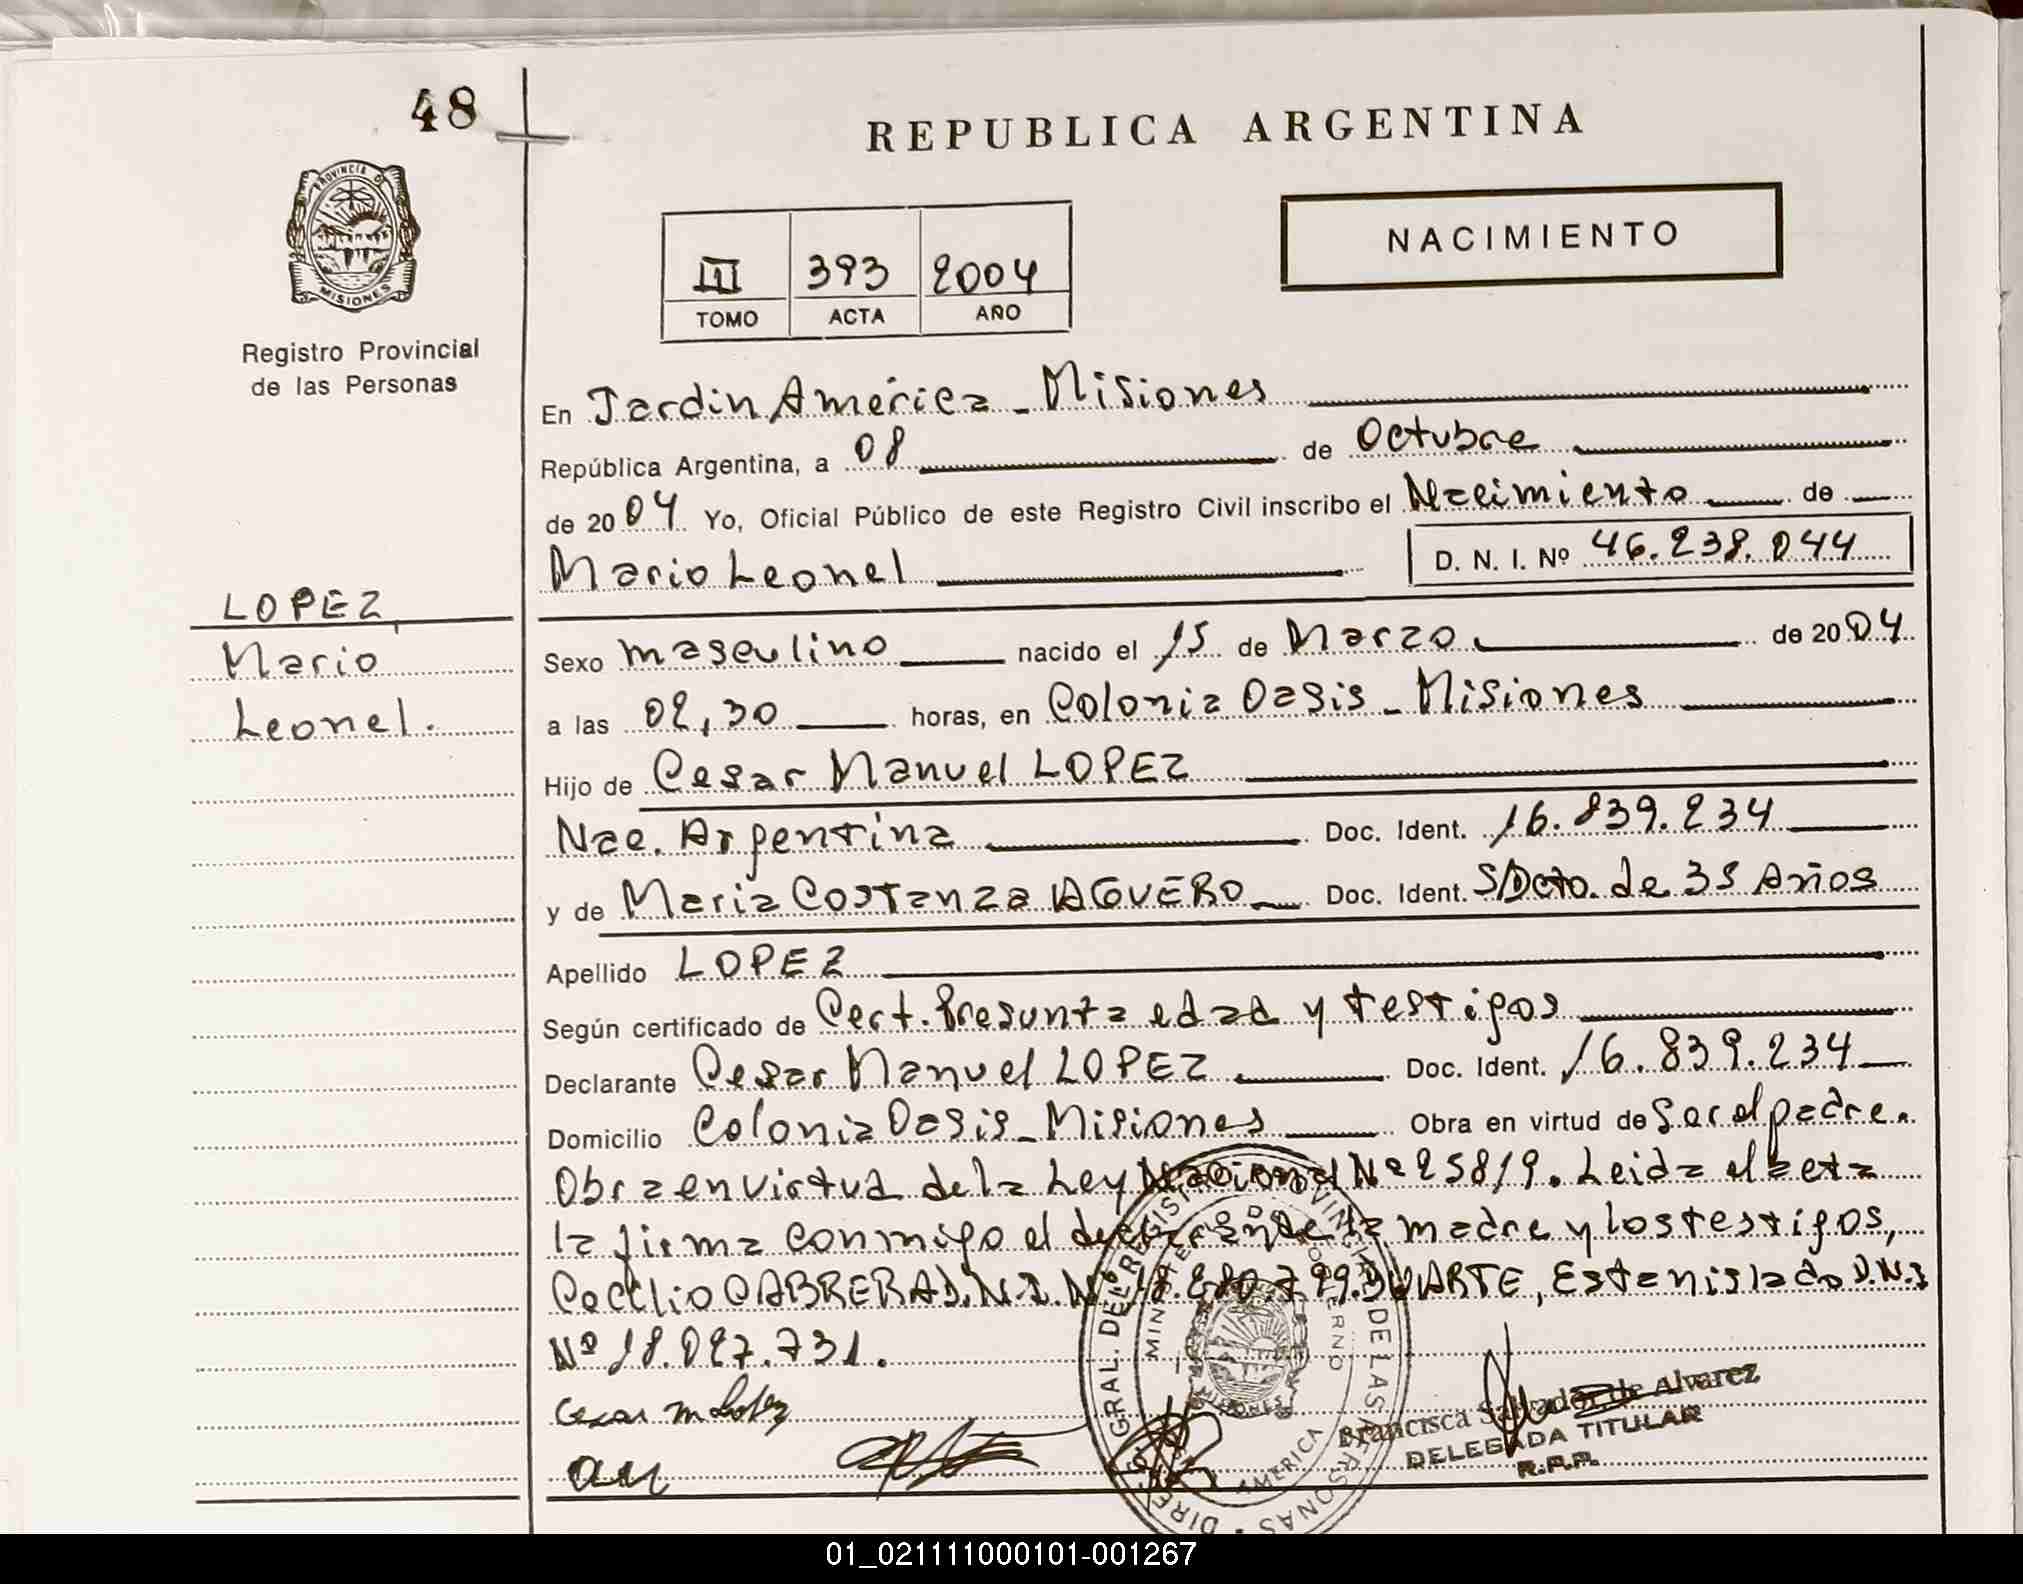 48
REPUBLICA ARGENTINA
PROVINCIA DE
MISIONES
NACIMIENTO
III 393 2004
TOMO ACTA AÑO
Registro Provincial
de las Personas
En Jardin América - Misiones
República Argentina, a 08 de Octubre
de 2004 Yo, Oficial Público de este Registro Civil inscribo el Nacimiento de
Mario Leonel D. N. I. Nº 46.238.044
LOPEZ
Mario
Leonel.
Sexo masculino nacido el 15 de Marzo de 2004
a las 02,30 horas, en Colonia Oasis - Misiones
Hijo de Cesar Manuel LOPEZ
Nac. Argentina Doc. Ident. 16.839.234
y de Maria Costanza AGUERO Doc. Ident. S/Dcto. de 35 Años
Apellido LOPEZ
Según certificado de Cert. Presunta edad y testigos
Declarante Cesar Manuel LOPEZ Doc. Ident. 16.839.234
Domicilio Colonia Oasis - Misiones Obra en virtud de Ser el padre.
Obra en virtud de la Ley Nacional Nº 25819. Leida el acta
la firma conmigo el declarante la madre y los testigos,
Cecilio CABRERA D.N.I. Nº DUARTE, Estanislado D.N.I
Nº 18.027.731.
Cesar M Lopez
Francisca Salvador de Alvarez
DELEGADA TITULAR
R.P.P.
01_021111000101-001267